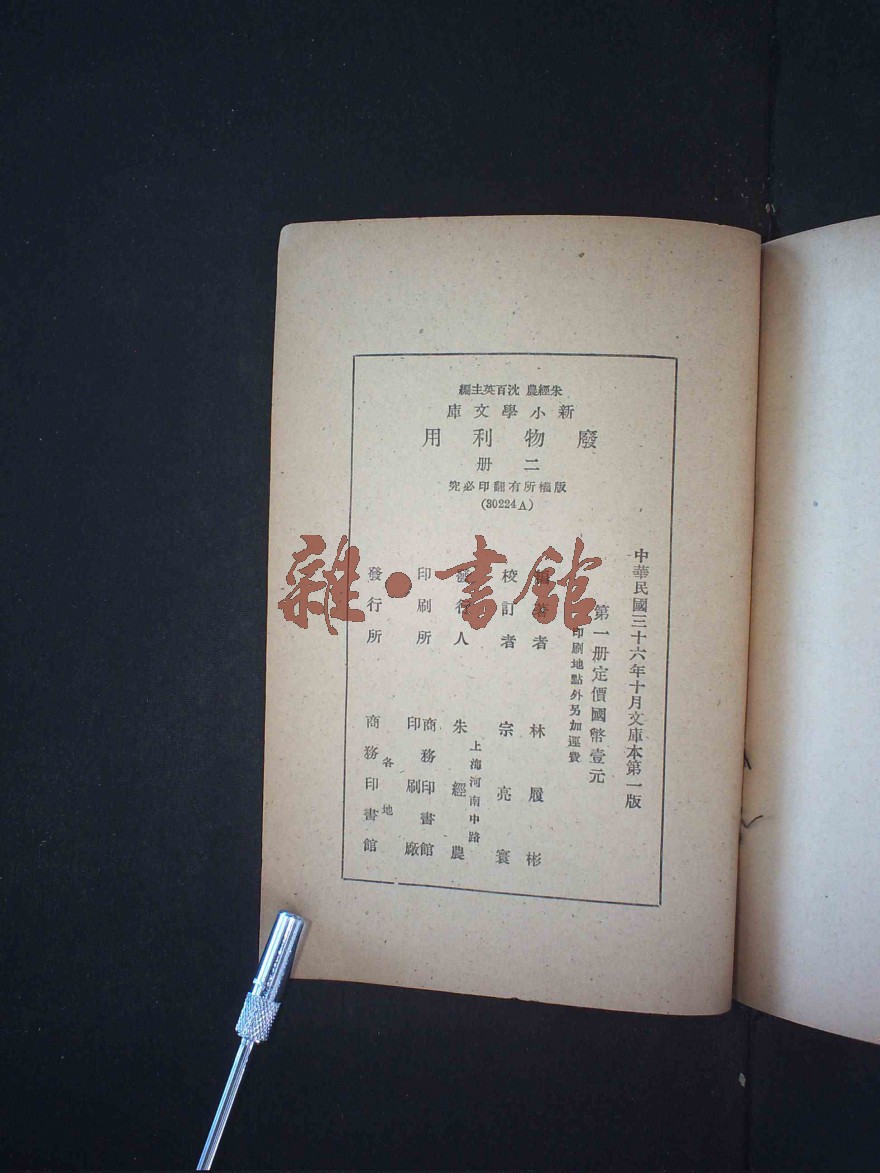 朱經農 沈百英主編
新小學文庫
廢物利用
二册
版權所有翻印必究
(30224A)
中華民國三十六年十月文庫本第一版
第一册定價國幣壹元
印刷地點外另加運費
編著者 林履彬
校訂者 宗亮寰
上海河南中路
發行人 朱經農
印刷所 商務印書館
印刷廠
各地
發行所 商務印書館
雜·書館